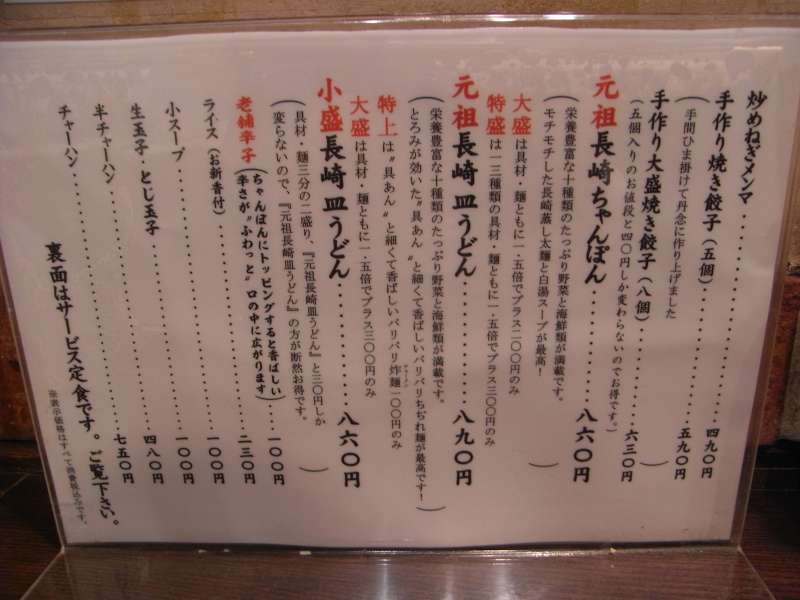 炒めねぎメンマ・・・・・・四九〇円
手作り焼き餃子（五個）・・・・・・五九〇円
（手間ひま掛けて丹念に作り上げました）
手作り大盛焼き餃子（八個）・・・・・・六三〇円
（五個入りのお値段と四〇円しか変わらないのでお得です。）
元祖長崎ちゃんぽん・・・・・・八六〇円
（栄養豊富な十種類のたっぷり野菜と海鮮類が満載です。
モチモチした長崎蒸し太麺と白湯スープが最高！）
大盛は具材・麺ともに一・五倍でプラス二〇〇円のみ
特盛は一三種類の具材・麺ともに一・五倍でプラス三〇〇円のみ
元祖長崎皿うどん・・・・・・八九〇円
（栄養豊富な十種類のたっぷり野菜と海鮮類が満載です。
とろみが効いた〝具あん〟と細くて香ばしいパリパリちぢれ麺が最高です！）
特上は〝具あん〟と細くて香ばしいパリパリ炸麺一〇〇円のみ
大盛は具材・麺ともに一・五倍でプラス三〇〇円のみ
小盛長崎皿うどん・・・・・・八六〇円
（具材・麺三分の二盛り、『元祖長崎皿うどん』と三〇円しか
変らないので、『元祖長崎皿うどん』の方が断然お得です。）
老舗辛子（ちゃんぽんにトッピングすると香ばしい辛さが〝ふわっと〟口の中に広がります）・・・・・・一〇〇円
ライス（お新香付）・・・・・・二三〇円
小スープ・・・・・・一〇〇円
生玉子・とじ玉子・・・・・・一〇〇円
半チャーハン・・・・・・四八〇円
チャーハン・・・・・・七五〇円
裏面はサービス定食です。ご覧下さい。
※表示価格はすべて消費税込みです。